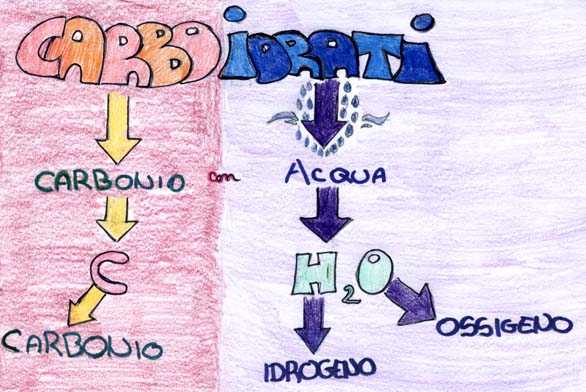 CARBOiDRATi
CARBONIO con ACQUA
C H2O
CARBONIO IDROGENO OSSIGENO